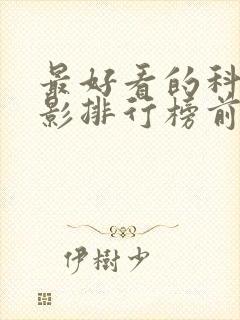 最好看的科
影排行榜前
伊樹少